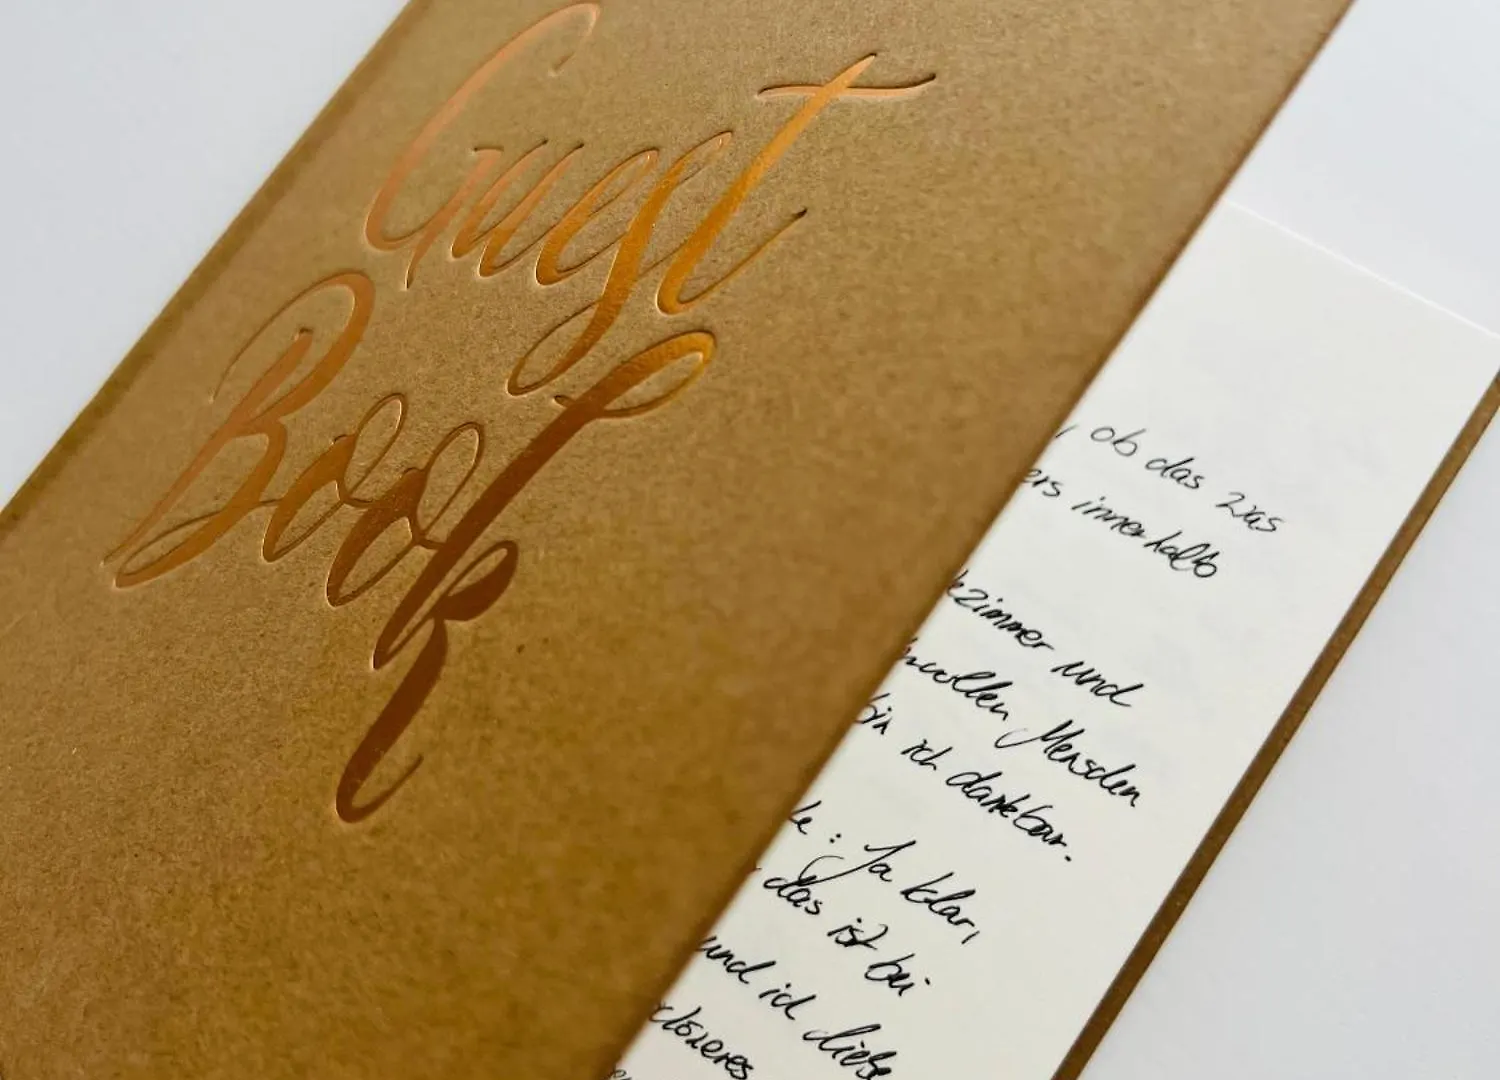 Guest
Book
, ob das was
ers innerhalb
ezimmer und
vollen Menschen
bin ich dankbar.
le: Ja klar,
das ist bei
und ich diese